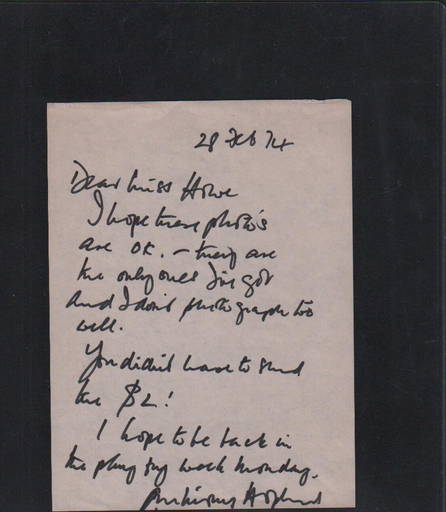 28 Feb 74
Dear Miss Howe
I hope these photo's
are OK. – they are
the only ones I've got
and I don't photograph too
well.
You didn't have to send
the $2!
I hope to be back in
the play by week Monday.
Anthony Hopkins